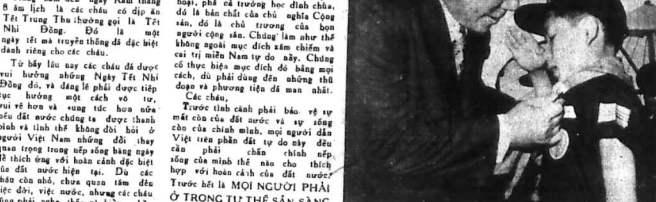 8 âm lịch là các cháu có dịp ăn
Tết Trung Thu thường gọi là Tết
Nhi Đồng. Đó là một
ngày tết mà truyền thống đã đặc biệt
dành riêng cho các cháu.
Từ bấy lâu nay các cháu đã được
vui hưởng những Ngày Tết Nhi
Đồng đó, và đáng lẽ phải được tiếp
tục hưởng một cách vô tư,
vui vẻ hơn và sung túc hơn nữa
nếu đất nước chúng ta được thanh
bình và tình thế không đòi hỏi ở
người Việt Nam những đổi thay
quan trọng trong nếp sống hàng ngày
để thích ứng với hoàn cảnh đặc biệt
của đất nước hiện tại. Dù các
cháu còn nhỏ, chưa quan tâm đến
việc đời, việc nước, nhưng các cháu
hoại, phá cả trường học đình chùa,
đó là bản chất của chủ nghĩa Cộng
sản, đó là chủ trương của bọn
người cộng sản. Chúng làm như thế
không ngoài mục đích xâm chiếm và
cai trị miền Nam tự do này. Chúng
cố thực hiện mục đích đó bằng mọi
cách, dù phải dùng đến những thủ
đoạn và phương tiện dã man nhất.
Các cháu,
Trước tình cảnh phải bảo vệ sự
mất còn của đất nước và sự sống
còn của chính mình, mọi người dân
Việt trên phần đất tự do này đều
cần phải chấn chỉnh nếp
sống của mình thế nào cho thích
hợp với hoàn cảnh của đất nước.
Trước hết là MỌI NGƯỜI PHẢI
Ở TRONG TƯ THẾ SẴN SÀNG